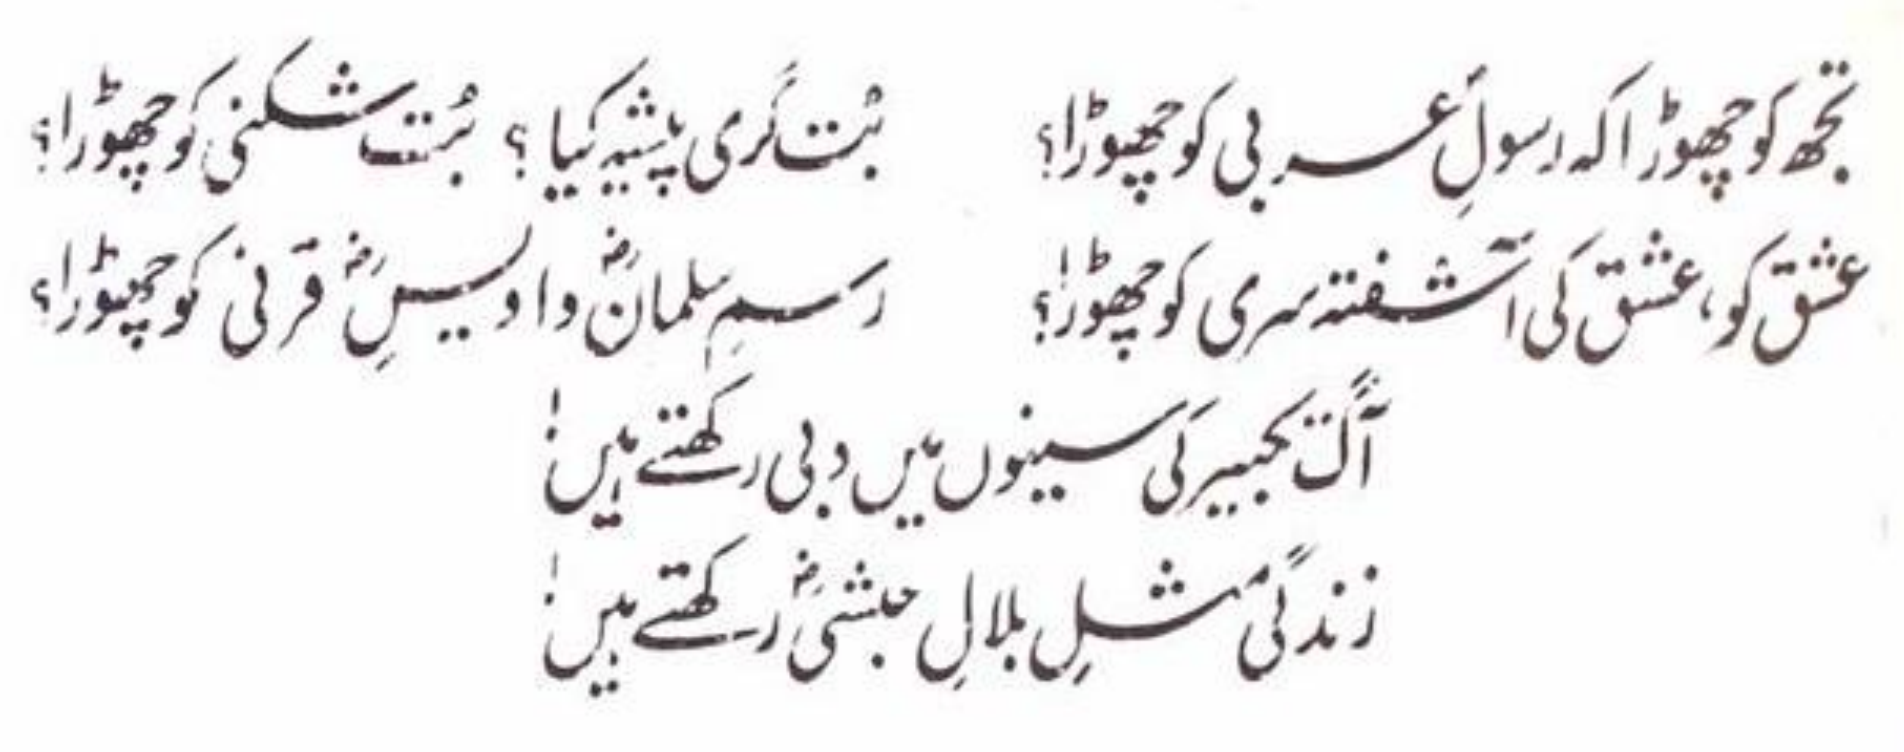 تجھ کو چھوڑا کہ رسولِؐ عربی کو چھوڑا؟ بُت گری پیشہ کیا؟ بُت شکنی کو چھوڑا؟
عشق کو، عشق کی آشفتہ سری کو چھوڑا؟ رسمِ سلمانؓ و اویسِؓ قرنی کو چھوڑا؟
آگ تکبیر کی سینوں میں دبی رکھتے ہیں!
زندگی مثلِ بلالِ حبشیؓ رکھتے ہیں!